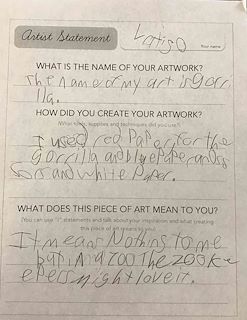 Artist Statement
Latigo
Your name
WHAT IS THE NAME OF YOUR ARTWORK?
the name of my art is gorri
lla.
HOW DID YOU CREATE YOUR ARTWORK?
(What tools, supplies and techniques did you use?)
I used red Paper for the
gorrilla and blue Paper and
and white Paper.
WHAT DOES THIS PIECE OF ART MEAN TO YOU?
(You can use "I" statements and talk about your inspiration and what creating
this piece of art means to you.)
It means Nothing to me
but in a zoo the zook
epers might love it.